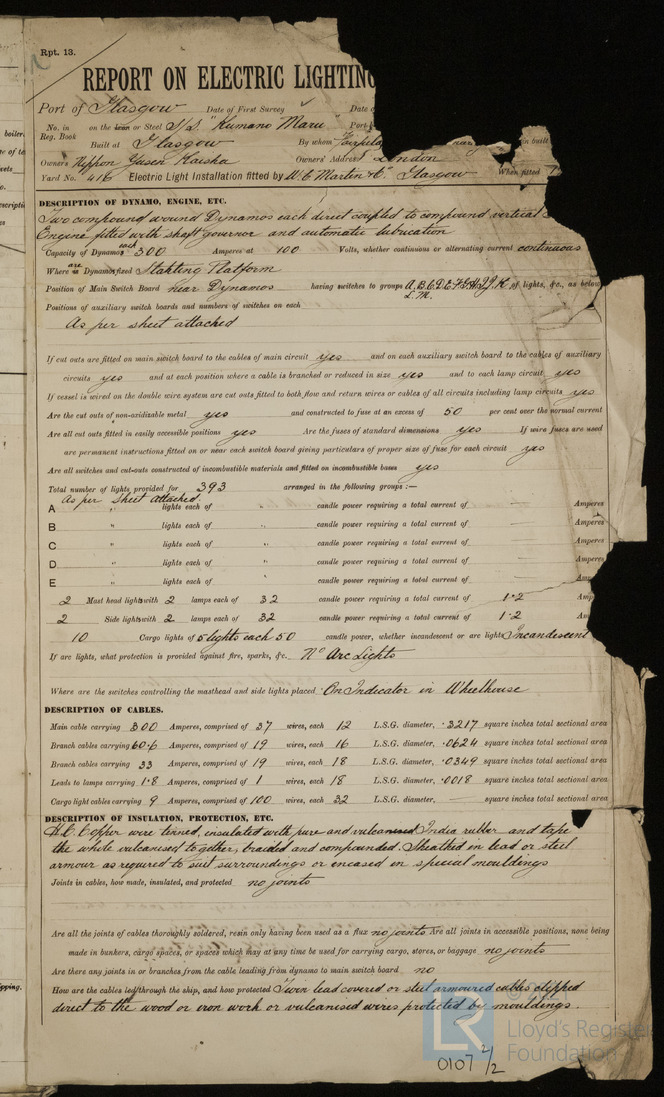 Rpt. 13.
REPORT ON ELECTRIC LIGHTING
Port of Glasgow Date of First Survey Date
No. in Reg. Book on the Iron or Steel S/S "Kumano Maru" Port
Built at Glasgow By whom Fairfield in built
Owners Nippon Yusen Kaisha Owners' Address London
Yard No. 416 Electric Light Installation fitted by W. C. Martin & Co. Glasgow When fitted
DESCRIPTION OF DYNAMO, ENGINE, ETC.
Two compound wound Dynamos each direct coupled to compound vertical
Engine fitted with shaft governor and automatic lubrication
Capacity of Dynamos each 300 Amperes at 100 Volts, whether continuous or alternating current continuous
Where are Dynamos fixed Starting Platform
Position of Main Switch Board near Dynamos having switches to groups A.B.C.D.E.F.G.H.I.J.K. of lights, &c., as below
L.M.
Positions of auxiliary switch boards and numbers of switches on each
As per sheet attached
If cut outs are fitted on main switch board to the cables of main circuit yes and on each auxiliary switch board to the cables of auxiliary
circuits yes and at each position where a cable is branched or reduced in size yes and to each lamp circuit yes
If vessel is wired on the double wire system are cut outs fitted to both flow and return wires or cables of all circuits including lamp circuits yes
Are the cut outs of non-oxidizable metal yes and constructed to fuse at an excess of 50 per cent over the normal current
Are all cut outs fitted in easily accessible positions yes Are the fuses of standard dimensions yes If wire fuses are used
are permanent instructions fitted on or near each switch board giving particulars of proper size of fuse for each circuit yes
Are all switches and cut-outs constructed of incombustible materials and fitted on incombustible bases yes
Total number of lights provided for 393 arranged in the following groups :—
As per sheet attached.
A " lights each of " candle power requiring a total current of — Amperes
B " lights each of " candle power requiring a total current of — Amperes
C " lights each of " candle power requiring a total current of — Amperes
D " lights each of " candle power requiring a total current of — Amperes
E " lights each of " candle power requiring a total current of — Am
2 Mast head lights with 2 lamps each of 32 candle power requiring a total current of 1·2 Am
2 Side lights with 2 lamps each of 32 candle power requiring a total current of 1·2 Am
10 Cargo lights of 5 lights each 50 candle power, whether incandescent or arc lights Incandescent
If arc lights, what protection is provided against fire, sparks, &c. No Arc Lights
Where are the switches controlling the masthead and side lights placed On Indicator in Wheelhouse
DESCRIPTION OF CABLES.
Main cable carrying 300 Amperes, comprised of 37 wires, each 12 L.S.G. diameter, ·3217 square inches total sectional area
Branch cables carrying 60·6 Amperes, comprised of 19 wires, each 16 L.S.G. diameter, ·0624 square inches total sectional area
Branch cables carrying 33 Amperes, comprised of 19 wires, each 18 L.S.G. diameter, ·0349 square inches total sectional area
Leads to lamps carrying 1·8 Amperes, comprised of 1 wires, each 18 L.S.G. diameter, ·0018 square inches total sectional area
Cargo light cables carrying 9 Amperes, comprised of 100 wires, each 32 L.S.G. diameter, — square inches total sectional area
DESCRIPTION OF INSULATION, PROTECTION, ETC.
H.C. Copper wire tinned, insulated with pure and vulcanised India rubber and tape
the whole vulcanised together, braided and compounded. Sheathed in lead or steel
armour as required to suit surroundings or encased in special mouldings
Joints in cables, how made, insulated, and protected no joints
Are all the joints of cables thoroughly soldered, resin only having been used as a flux no joints Are all joints in accessible positions, none being
made in bunkers, cargo spaces, or spaces which may at any time be used for carrying cargo, stores, or baggage no joints
Are there any joints in or branches from the cable leading from dynamo to main switch board no
How are the cables led through the ship, and how protected Twin lead covered or steel armoured cables clipped
direct to the wood or iron work or vulcanised wires protected by mouldings.
Lloyd's Register
Foundation
0107 2/2